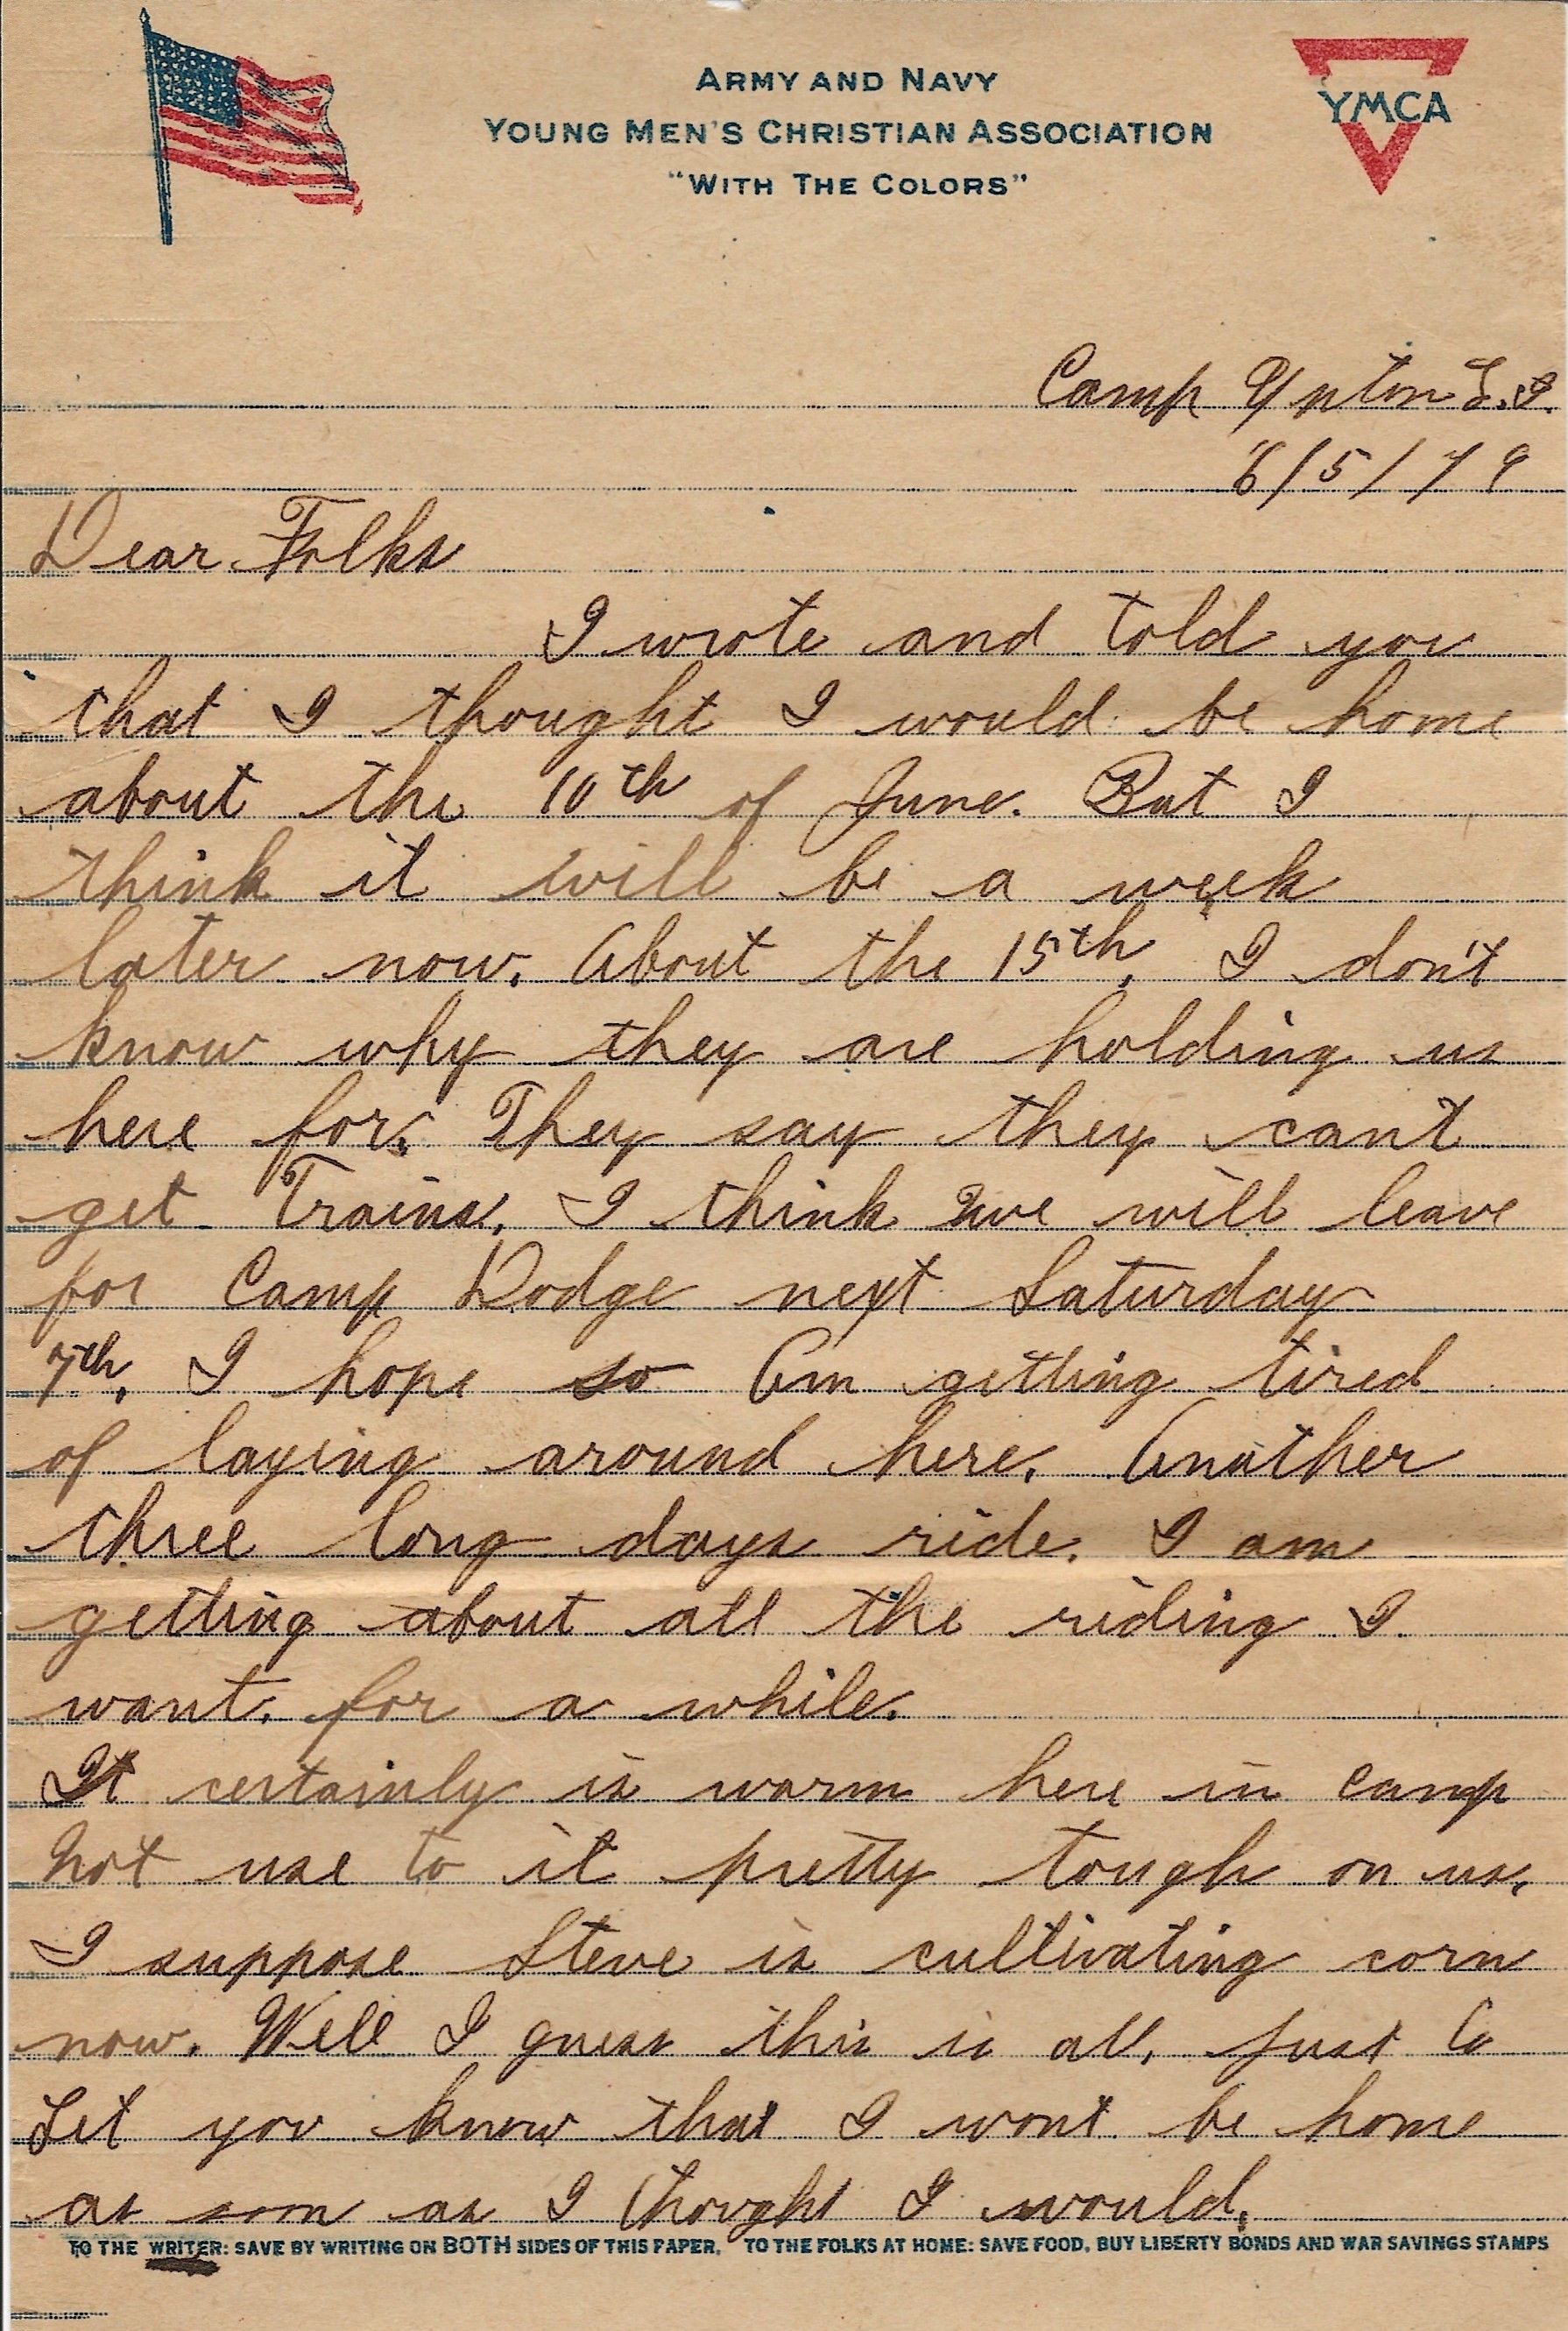 ARMY AND NAVY
YOUNG MEN'S CHRISTIAN ASSOCIATION
"WITH THE COLORS"
YMCA
Camp Upton L.I.
6/5/19
Dear Folks
I wrote and told you
that I thought I would be home
about the 10th of June. But I
think it will be a week
later now. About the 15th. I don't
know why they are holding us
here for. They say they can't
get Trains. I think we will leave
for Camp Dodge next Saturday
7th. I hope so Am getting tired
of laying around here. Another
three long days ride. I am
getting about all the riding I
want. for a while.
It certainly is warm here in camp
Not use to it pretty tough on us.
I suppose Steve is cultivating corn
now. Well I guess this is all, just to
Let you know that I wont be home
as soon as I thought I would.
TO THE WRITER: SAVE BY WRITING ON BOTH SIDES OF THIS PAPER. TO THE FOLKS AT HOME: SAVE FOOD, BUY LIBERTY BONDS AND WAR SAVINGS STAMPS